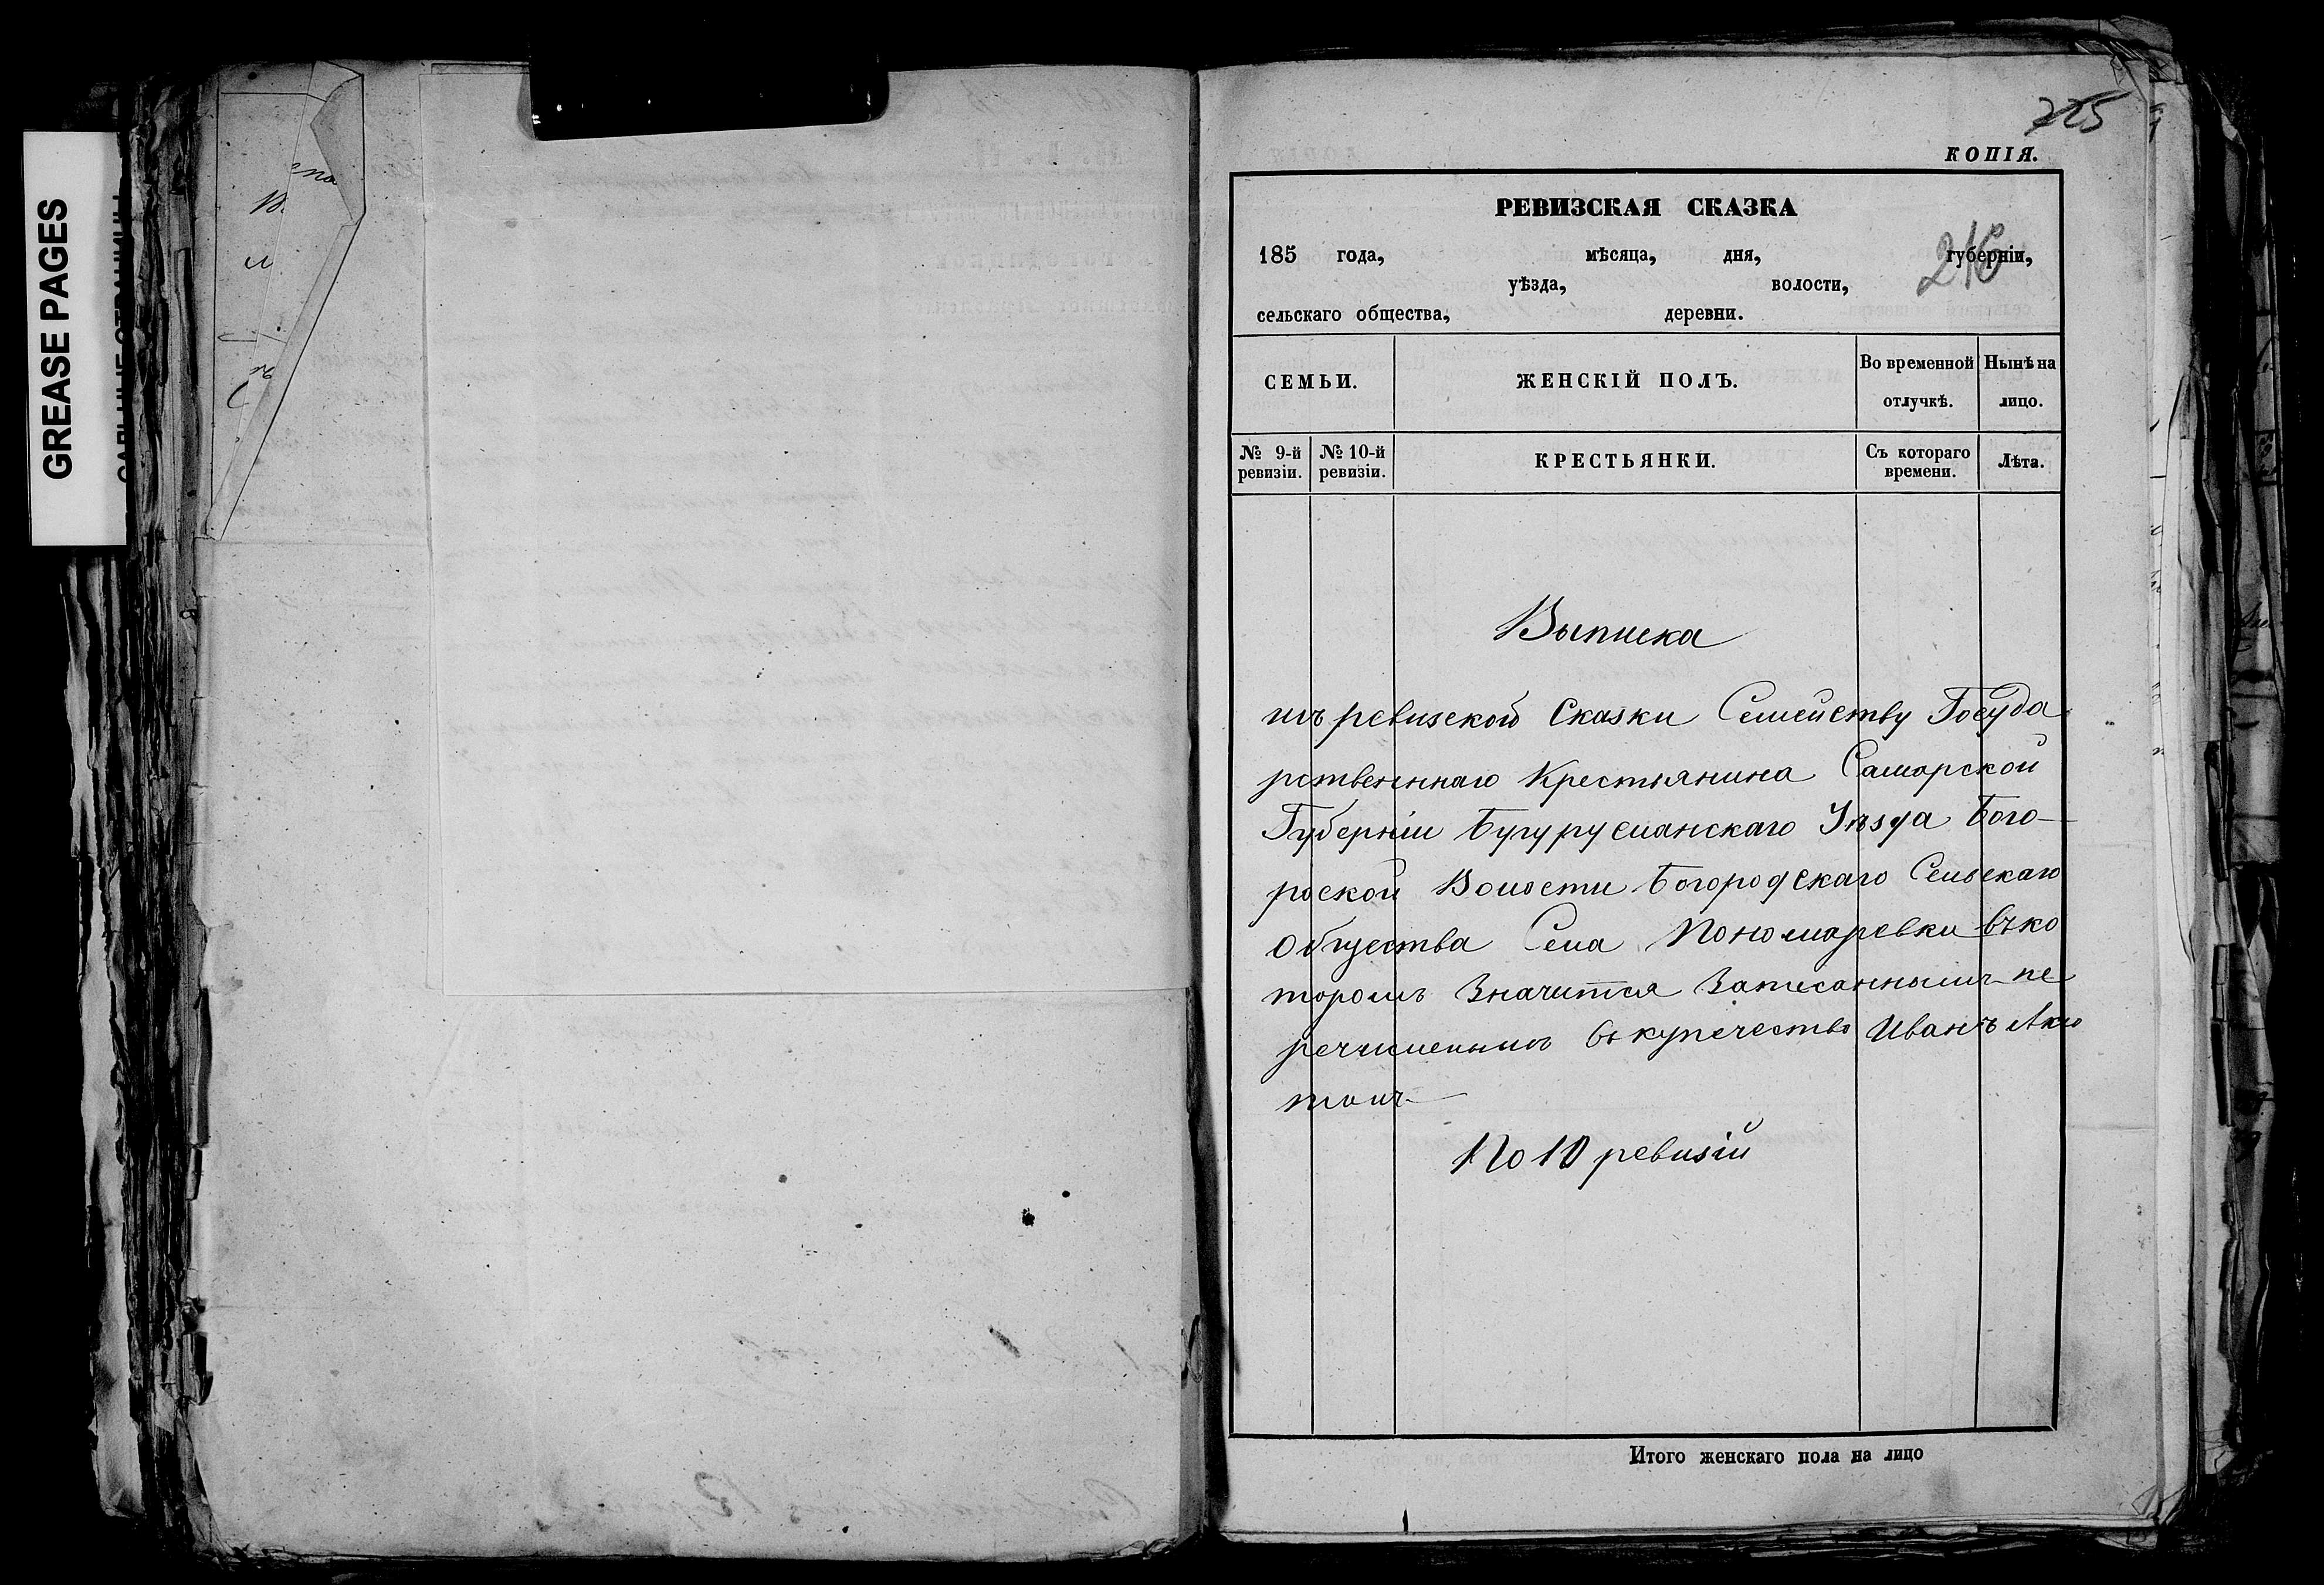 GREASE PAGES
225
КОПІЯ.
РЕВИЗСКАЯ СКАЗКА
216
185 года, мѣсяца, дня, губерніи,
уѣзда, волости,
сельскаго общества, деревни.
СЕМЬИ. ЖЕНСКІЙ ПОЛЪ. Во временной отлучкѣ. Нынѣ на лицо.
№ 9-й ревизіи. № 10-й ревизіи. КРЕСТЬЯНКИ. Съ котораго времени. Лѣта.
Выписка
изъ ревизской Сказки Семейству Госуда
рственнаго Крестьянина Самарской
Губерніи Бугурусланскаго Уѣзда Бого-
роской Волости Богородскаго Сельскаго
Общества Села Пономаревки въ ко
торомъ Значится Записаннымъ пе
речисленымъ въ купечество Иванъ
По 10 ревизіи
Итого женскаго пола на лицо